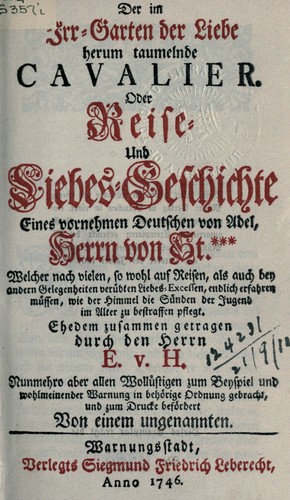 S357i
Der im
Irr-Garten der Liebe
herum taumelnde
CAVALIER.
Oder
Reise-
Und
Liebes-Geschichte
Eines vornehmen Deutschen von Adel,
Herrn von St.***
Welcher nach vielen, so wohl auf Reisen, als auch bey
andern Gelegenheiten verübten Liebes-Excessen, endlich erfahren
müssen, wie der Himmel die Sünden der Jugend
im Alter zu bestraffen pflegt.
Ehedem zusammen getragen
durch den Herrn
E. v. H.
Nunmehro aber allen Wollüstigen zum Beyspiel und
wohlmeinender Warnung in behörige Ordnung gebracht,
und zum Drucke befördert
Von einem ungenannten.
124231
21/9/12
Warnungsstadt,
Verlegts Siegmund Friedrich Leberecht,
Anno 1746.